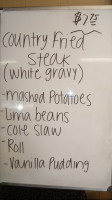 $7.75
Country Fried
Steak
(white gravy)
-mashed Potatoes
-Lima beans
-cole Slaw
-Roll
-Vanilla Pudding